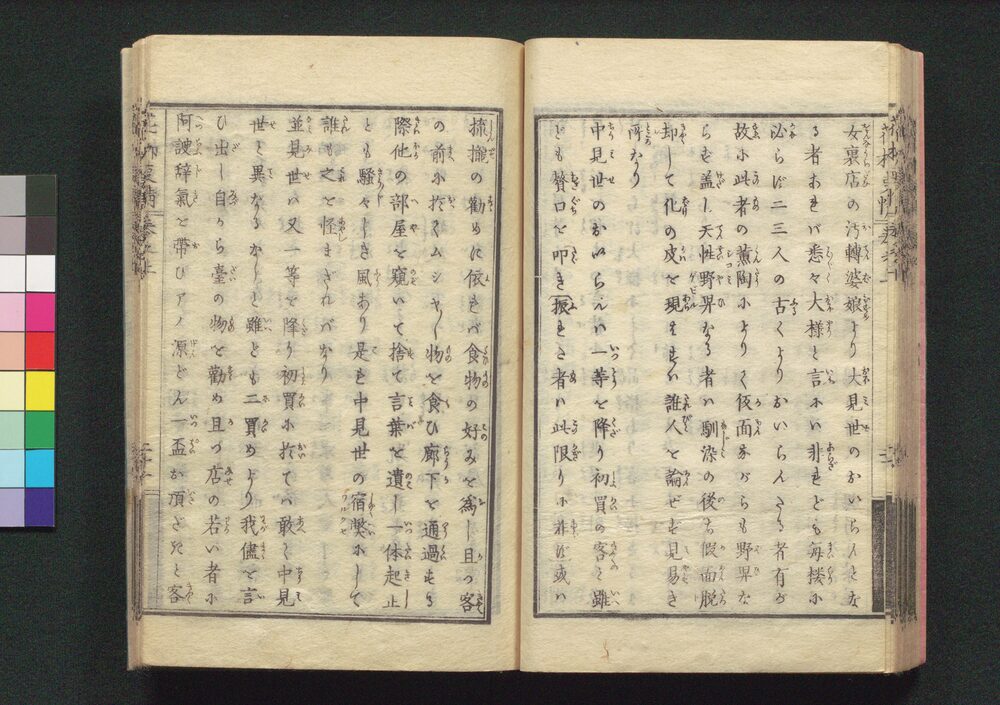 女裏店の汚轉婆娘より大見世のおいらんとな
る者あれバ悉々大様と言ふハ非れども毎楼に
必らず二三人の古くよりおいらんたる者有り
故に此者の薫陶により多く仮面ながらも野卑な
らず盖し天性野卑なる者ハ馴染の後ち假面脱
却して化の皮を現すハ誰人を論ぜず見易き
所なり
中見世のおいらんハ一等を降り初買の客と雖
ども贅口を叩き振れき者ハ此限りに非ず或ハ
の勧めに依れバ食物の好みを為し且つ客
の前に於てムシャ〳〵物を食ひ廊下を通過する
際他の部屋を窺いて捨て言葉を遺し一体起止
とも騒々しき風あり是も中見世の宿弊にして
誰も之を怪まざれバなり
並見世ハ又一等を降り初買に於てハ敢て中見
世と異ならなしと雖ども二買めより我儘を言
ひ出し自から臺の物を勧め且つ店の若い者に
阿諛辞氣を帯びアノ源どん一盃お頂きだと客